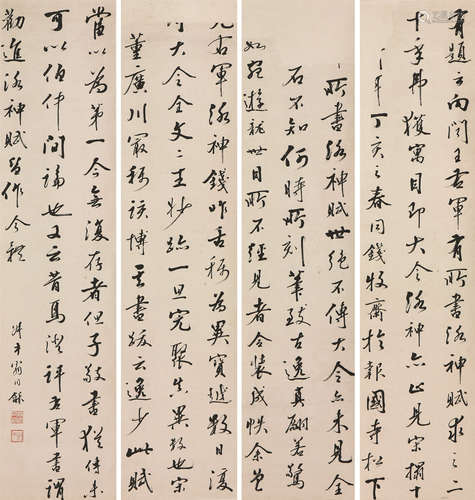 有題云向聞王右軍有所書洛神賦求之二
十年弗獲寓目即大令洛神亦止見宋搨十
行丁亥之春同錢牧齋於報國寺松下
所書洛神賦世絕不傳大令亦未見全
石不知何時所刻筆致古逸真翩若驚
宛遊龍世目所不經見者今裝成帙余曾
見右軍洛神錢咋舌稱為異寶越數日復
得大令全文二王妙跡一旦完聚真異敏也宋
董廣川最稱該博其書跋云逸少此賦
當以為第一今無復存者但子敬書猶傳未
可以伯仲間論也又云昔馬澄評右軍書謂
勸進洛神賦皆作今體
叔平翁同龢